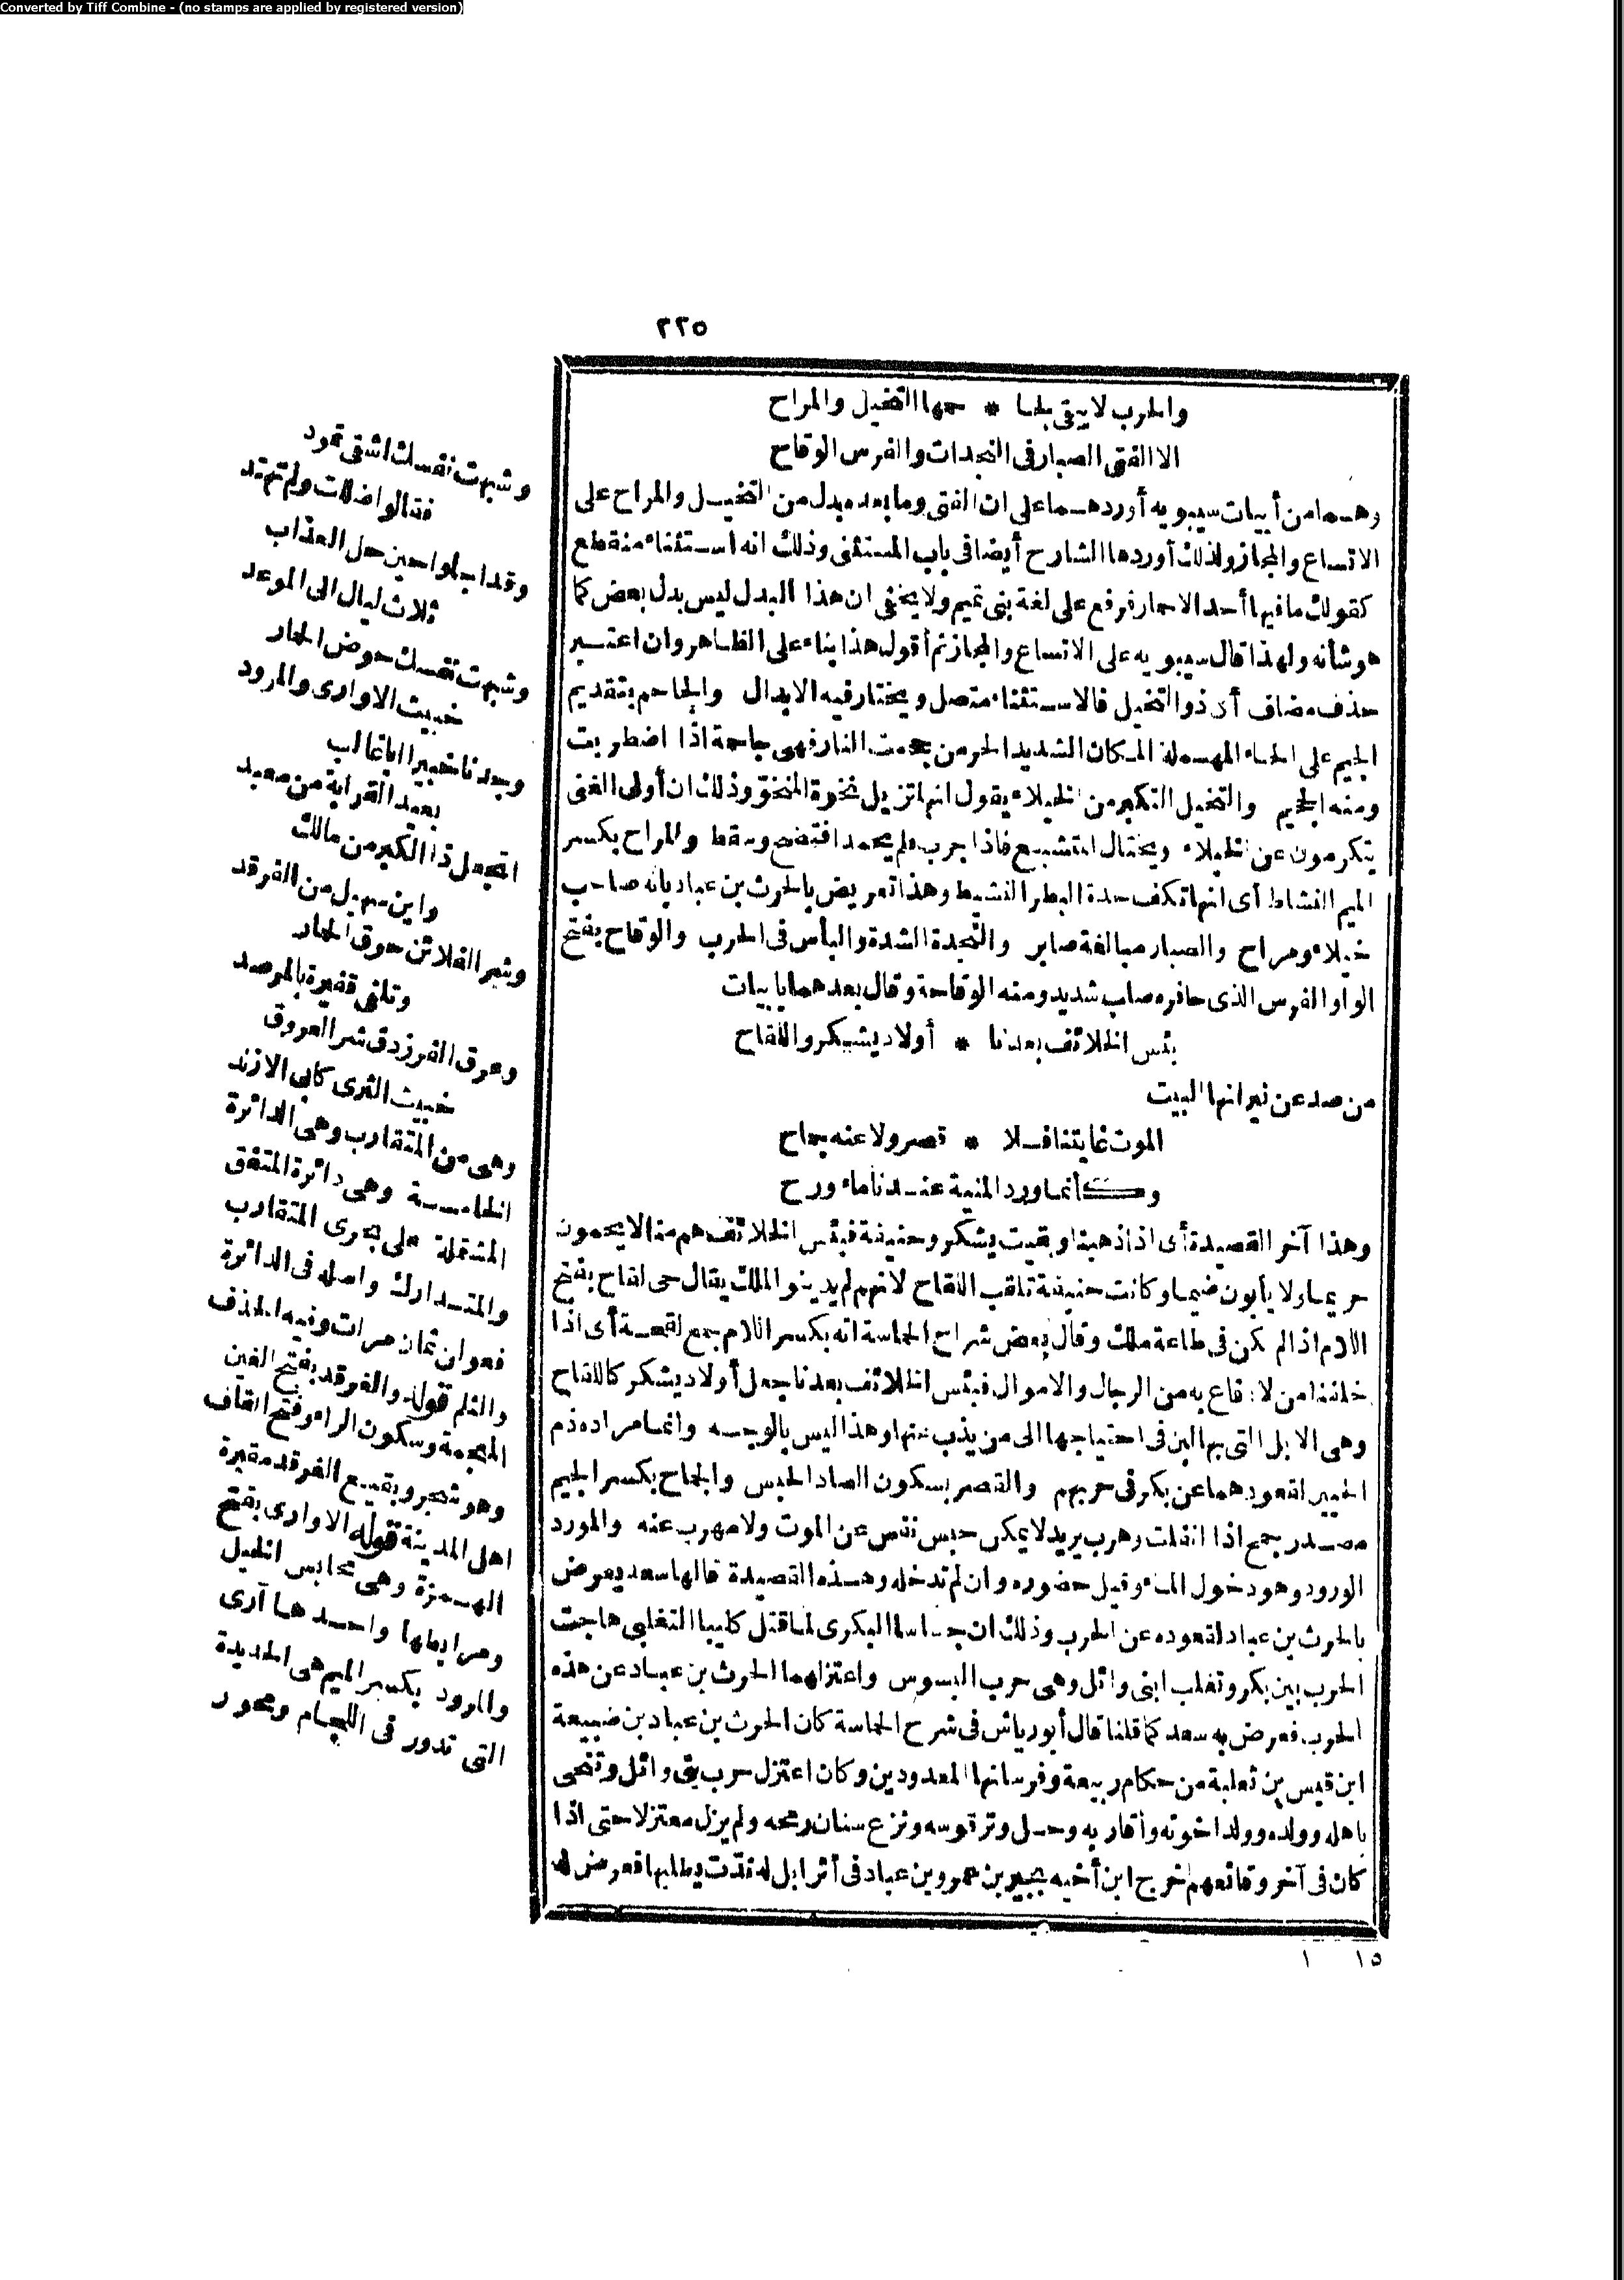 Converted by Tiff Combine - (no stamps are applied by registered version)
٢٢٥
والحرب لا يبقى لجا * حمها التخيل والمراح
الا الفتى الصبار فى النجدات والفرس الوقاح
وهــما من أبيات سيبويه أوردهــما على ان الفتى وما بعده بدل من التخيــل والمراح على
الاتساع والمجاز ولذلك أوردها الشارح أيضا فى باب المستثنى وذلك انه اســتثناء منقطع
كقولك ما فيها أحد الا حمار فرفع على لغة بنى تميم ولا يخفى ان هذا البدل ليس بدل بعض كما
هو شأنه ولهذا قال سيبويه على الاتساع والمجاز ثم أقول هذا بناء على الظــاهر وان اعتــبر
حذف مضاف أى ذو التخيل فالاســتثناء متصل ويختار فيه الابدال والجاحم بتقديم
الجيم على الحاء المهــملة المكان الشديد الحر من جحمت النار فهى جاحمة اذا اضطربت
ومنه الجحيم والتخيل التكبر من الخيلاء يقول انها تزيل نخوة المنخو وذلك ان أولى الغنى
يتكرمون عن الخيلاء ويختال المتشبع فاذا جرب فلم يحمد افتضح وسقط والمراح بكسر
الميم النشاط أى انها تكف حدة البطر النشيط وهذا تعريض بالحرث بن عباد بانه صاحب
خيلاء ومراح والصبار مبالغة صابر والنجدة الشدة والبأس فى الحرب والوقاح بفتح
الواو الفرس الذى حافره صلب شديد ومنه الوقاحة وقال بعدهما بابيات
بئس الخلائف بعدنا * أولاد يشكر واللقاح
من صد عن نيرانها البيت
الموت غايتنا فــلا * قصر ولا عنه جماح
وكــأنما ورد المنية عنــدنا ماء وراح
وهذا آخر القصيدة أى اذا ذهبنا وبقيت يشكر وحنيفة فبئس الخلائف هم منا لا يحمون
حريما ولا يأبون ضيما وكانت حنيفة تلقب اللقاح لانهم لم يدينوا لملك يقال حى لقاح بفتح
اللام اذا لم يكن فى طاعة ملك وقال بعض شراح الحماسة انه بكسر اللام جمع لقحــة أى اذا
خلفنا من لا دفاع به من الرجال والاموال فبئس الخلائف بعدنا جعل أولاد يشكر كاللقاح
وهى الابل التى بها لبن فى احتياجها الى من يذب عنها وهذا ليس بالوجــه وانمــا مراده ذم
الحيين لقعودهما عن بكر فى حربهم والقصر بسكون الصاد الحبس والجماح بكسر الجيم
مصــدر جمح اذا انفلت وهرب يريد لا يمكن حبس نفس عن الموت ولا مهرب عنه والمورد
الورود وهو دخول المــاء وقيل حضوره وان لم تدخله وهــذه القصيدة قالها سعد يعرض
بالحرث بن عباد لقعوده عن الحرب وذلك ان جساسا البكرى لما قتل كليبا التغلبى هاجت
الحرب بين بكر وتغلب ابنى وائل وهى حرب البسوس واعتزلهما الحرث بن عبــاد عن هذه
الحرب فعرض به سعد كما قلنا قال أبو رياش فى شرح الحماسة كان الحرث بن عباد بن ضبيعة
ابن قيس بن ثعلبة من حكام ربيعة وفرسانها المعدودين وكان اعتزل حرب بنى وائل وتنحى
باهله وولده وولد اخوته وأقاربه وحــل وتر قوسه ونزع سنان رمحه ولم يزل معتزلا حتى اذا
كان فى آخر وقائعهم خرج ابن أخيه بجير بن عمرو بن عباد فى أثر ابل له ندّت يطلبها فعرض له
١٥ ١
وشبهت نفسك اشقى ثمود
فقالوا ضللت ولم تهتد
وقد اجلوا حين حل العذاب
ثلاث ليال الى الموعد
وشبهت نفسك حوض الحمار
خبيث الاوارى والمرود
وجدنا جبيرا ابا غالب
بعيد القرابة من معبد
اتجعل ذا الكير من مالك
واين سهيل من الفرقد
وشر الفلا ثن حوق الحمار
وتلفى قفيرة بالمرصد
وعرق الفرزدق شر العروق
خبيث الثرى كابى الازند
وهى من المتقارب وهى الدائرة
الخامســة وهى دائرة المتفق
المشتملة على بحرى المتقارب
والمتــدارك واصله فى الدائرة
فعولن ثمان مرات وفيه الحذف
والثلم قوله والغرقد بفتح الغين
المعجمة وسكون الراء وفتح القاف
وهو شجر وبقيــع الغرقد مقبرة
اهل المدينة قوله الاوارى بفتح
الهــمزة وهى محابس الخيل
ومرابطها واحــدها آرى
والمرود بكسر الميم هى الحديدة
التى تدور فى اللجــام ومحور